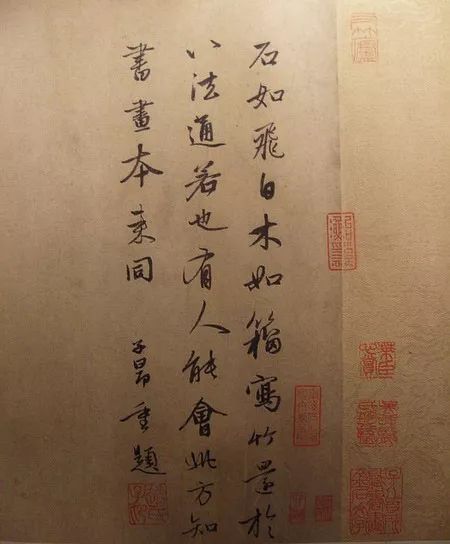 石如飛白木如籀寫竹還於
八法通若也有人能會此方知
書畫本來同 子昂重題